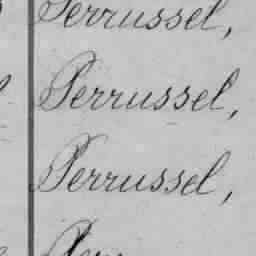 Perrussel,
Perrussel,
Perrussel,